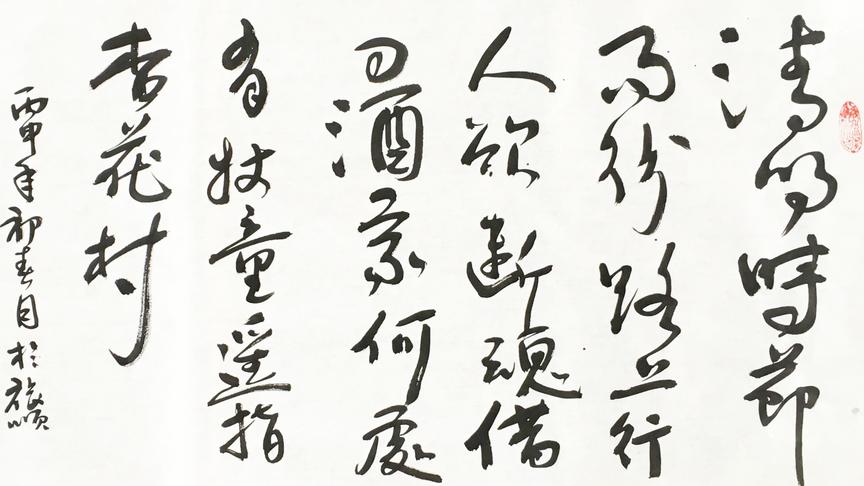 清明時節
雨紛路上行
人欲斷魂借
問酒家何處
有牧童遥指
杏花村
丙申年初春於旅順